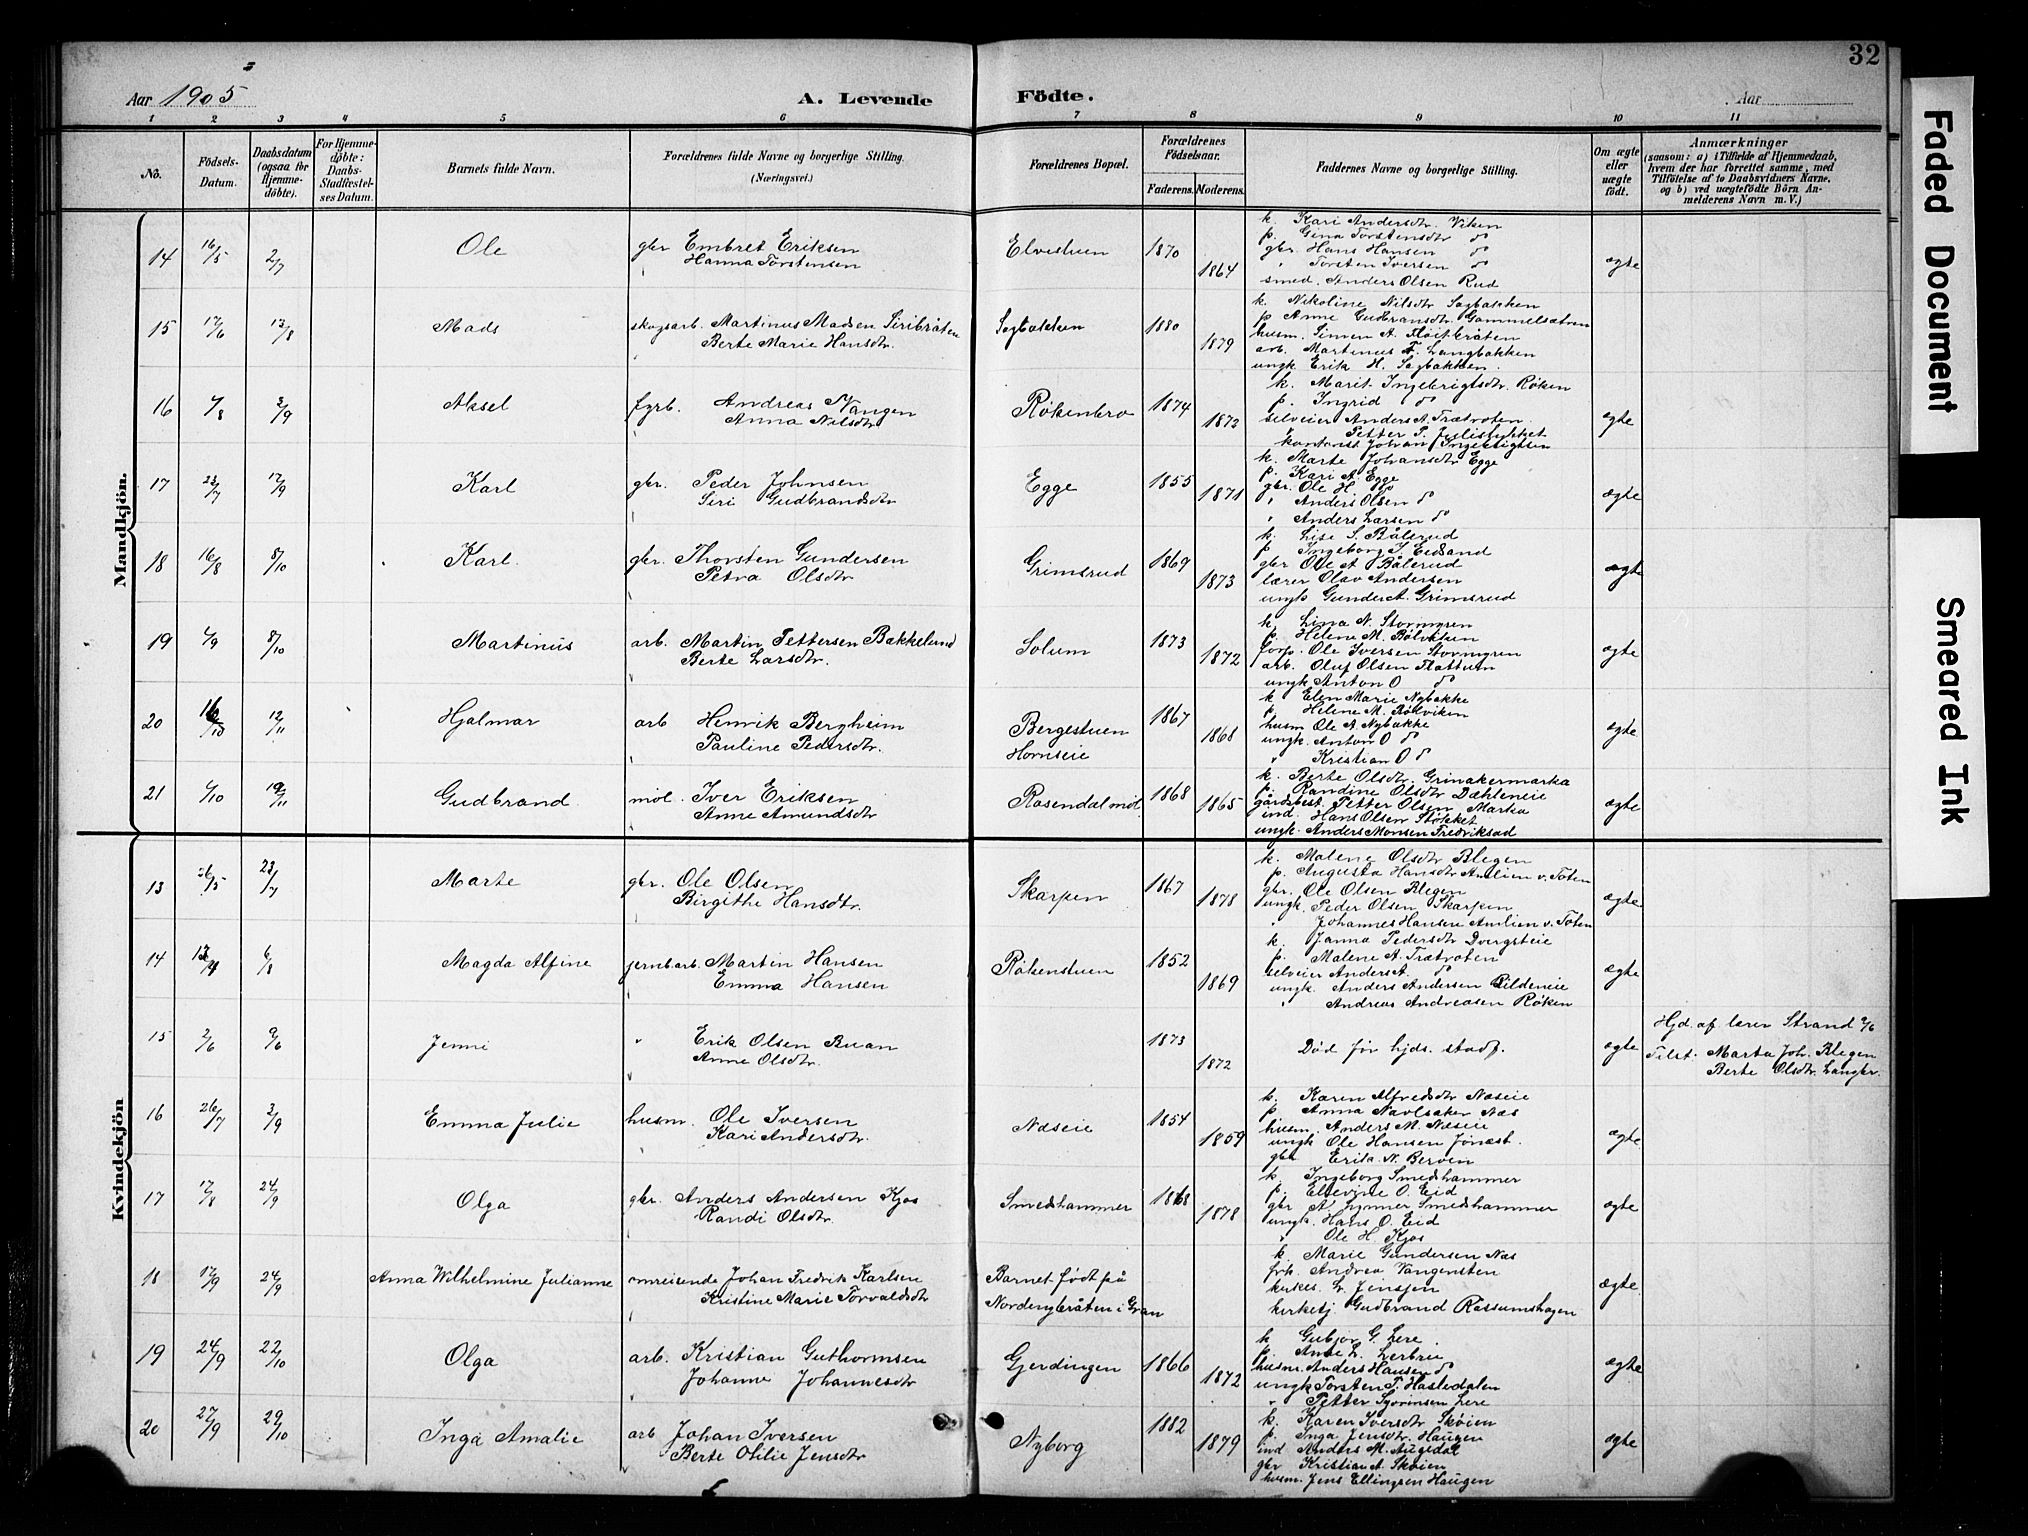 32
Aar 1905
A. Levende Födte.
Aar
1 2 3 4 5 6 7 8 9 10 11
No.
Födsels-Datum.
Daabsdatum (ogsaa for Hjemmedöbte).
For Hjemmedöbte: Daabs-Stadfæstelses Datum.
Barnets fulde Navn.
Forældrenes fulde Navne og borgerlige Stilling. (Næringsvei.)
Forældrenes Bopæl.
Forældrenes Födselsaar.
Faderens. Moderens.
Faddernes Navne og borgerlige Stilling.
Om ægte eller uægte födt.
Anmærkninger
(saasom: a) i Tilfælde af Hjemmedaab, hvem der har forrettet samme, med Tilföielse af to Daabsvidners Navne, og b) ved uægtefödte Börn Anmelderens Navn m. V.)
Mandkjön.
14 16/5 2/7 Ole gbr Embret Eriksen Elvestuen 1870
Hanna Torstensen 1864 ægte
k. Kari Andersdtr. Viken
p. Gina Torstensdtr do
gbr. Hans Hansen do
" Torsten Iversen do
smed. Anders Olsen Rud
15 17/6 13/8 Mads skogsarb. Martinus Madsen Siribråten Sagbakken 1880
Berte Marie Hansdtr. 1879
k. Nikoline Nilsdtr Sagbakken
p Anne Gudbrandsdtr Gammelsætren
husm. Simen A. Fløitbråten
arb. Martinus F. Langbakken
ungk Erik H. Sagbakken.
16 4/8 3/9 Aksel fyrb. Andreas N Vangen Røkenbro 1874
Anna Nilsdtr 1872 ægte
k. Marit Ingebrigtsdtr. Røken
p. Ingrid do
selveier Anders A. Trætroten
" Petter P. Julistykket
kontorist Johan Ingebrigtsen
17 23/7 17/9 Karl gbr. Peder Johnsen Egge 1855
Siri Gudbrandsdtr 1871 ægte
k. Marte Johansdtr Egge
p. Kari A. Egge
gbr. Ole H. do
" Anders Olsen do
" Anders Larsen do
18 16/8 8/10 Karl. gbr. Thorsten Gundersen Grimsrud 1869
Petra Olsdtr 1873 ægte
k. Lise S. Bålerud
p Ingeborg I. Eidsand
gbr Ole A Bålerud
lærer Olav Andersen
ungk Gunder A. Grimsrud
19 4/9 8/10 Martinus arb. Martin Pettersen Bakkelund Solum 1873
Berte Larsdtr. 1872 ægte
k. Lina N. Stormyren
p. Helene M. Bølviken
Korp. Ole Iversen Stormyren
arb. Oluf Olsen Flattum
ungk Anton O do
20 16/10 12/11 Hjalmar arb Henrik Bergheim Bergestuen 1867
Pauline Pedersdtr. Hornseie 1868 ægte
k Elen Marie Nybakke
p Helene M. Bølviken
husm Ole A Nybakke
ungk. Anton O do
" Kristian O do
21 4/10 19/11 Gudbrand møl. Iver Eriksen Rosendal møl. 1868
Anne Amundsdtr 1865 ægte
k. Berte Olsdtr. Grinakermarka
p. Randine Olsdtr Dæhleneie
gårdsbest. Petter Olsen Marka
ind. Hans Olsen Stokket
ungk. Anders Monsen Fredriksad
Kvindekjön
13 26/5 23/7 Marte gbr. Ole Olsen Skarpen 1867
Birgithe Hansdtr. 1878 ægte
k. Malene Olsdtr Blegen
p. Augusta Hansdtr Amlien v. Toten
gbr. Ole Olsen Blegen
ungk. Peder Olsen Skarpen
" Johannes Hansen Amlien v. Toten
14 13/4 6/8 Magda Alfine jernb arb. Martin Hansen Røkenstuen 1852
Emma Hansen 1869 ægte
k. Janna Pedersdtr Dvergsteie
p. Malene A. Trætroten
selveier Anders A. do
ungk. Anders Andersen Eildeneie
" Andreas Andreasen Røken
15 2/6 9/6 Jenni " Erik Olsen Buan 1873
Anne Olsdtr. 1872 Død før hjds. stadf. ægte
Hjd. af lærer Strand 9/6
Tilst. Marta Joh. Blegen
Berte Olsdtr. Langbr.
16 26/7 3/9 Emma Julie husm. Ole Iversen Næseie 1854
Kari Andersdtr. 1859 ægte
k. Karen Alfredsdtr Næseie
p Anna Navlsaker Næs
husm. Anders M. Næseie
ungk Ole Hansen Jønasb.
gbr Erik N. Berven
17 17/8 24/9 Olga gbr. Anders Andersen Kjos Smedshammer 1868
Randi Olsdtr 1878 ægte
k. Ingeborg Smedshammer
p. Ellevine O. Eid
gbr A Gynner Smedshammer
ungk. Hans O. Eid
" Ole H. Kjos
18 17/9 24/9 Anna Wilhelmine Julianne omreisende Johan Fredrik Karlsen Barnet født på
Kristine Marie Torvaldsdtr Nordenbråten i Gran ægte
k. Marie Gundersen Næs
frk. Andrea Vangensten
kirkes. L. Jensen
kirketj Gudbrand Rossumshagen
19 24/9 22/10 Olga arb. Kristian Guthormsen Gjerdingen 1866
Johanne Johannesdtr 1872 ægte
k Gubjør G. Lere
p. Anne L. Lerbrei
husm. Anders Hansen do
ungk Torsten T. Hasledalen
" Petter Syvensen Lere
20 27/9 29/10 Inga Amalie arb Johan Iversen Nyborg 1882
Berte Otilie Jensdtr 1879 ægte
k. Karen Iversdtr Skøien
p. Inga Jensdtr. Haugen
ind Anders M. Augedal
gbr Kristian A. Skøien
husm. Jens Ellingsen Haugen
Faded Document
Smeared Ink